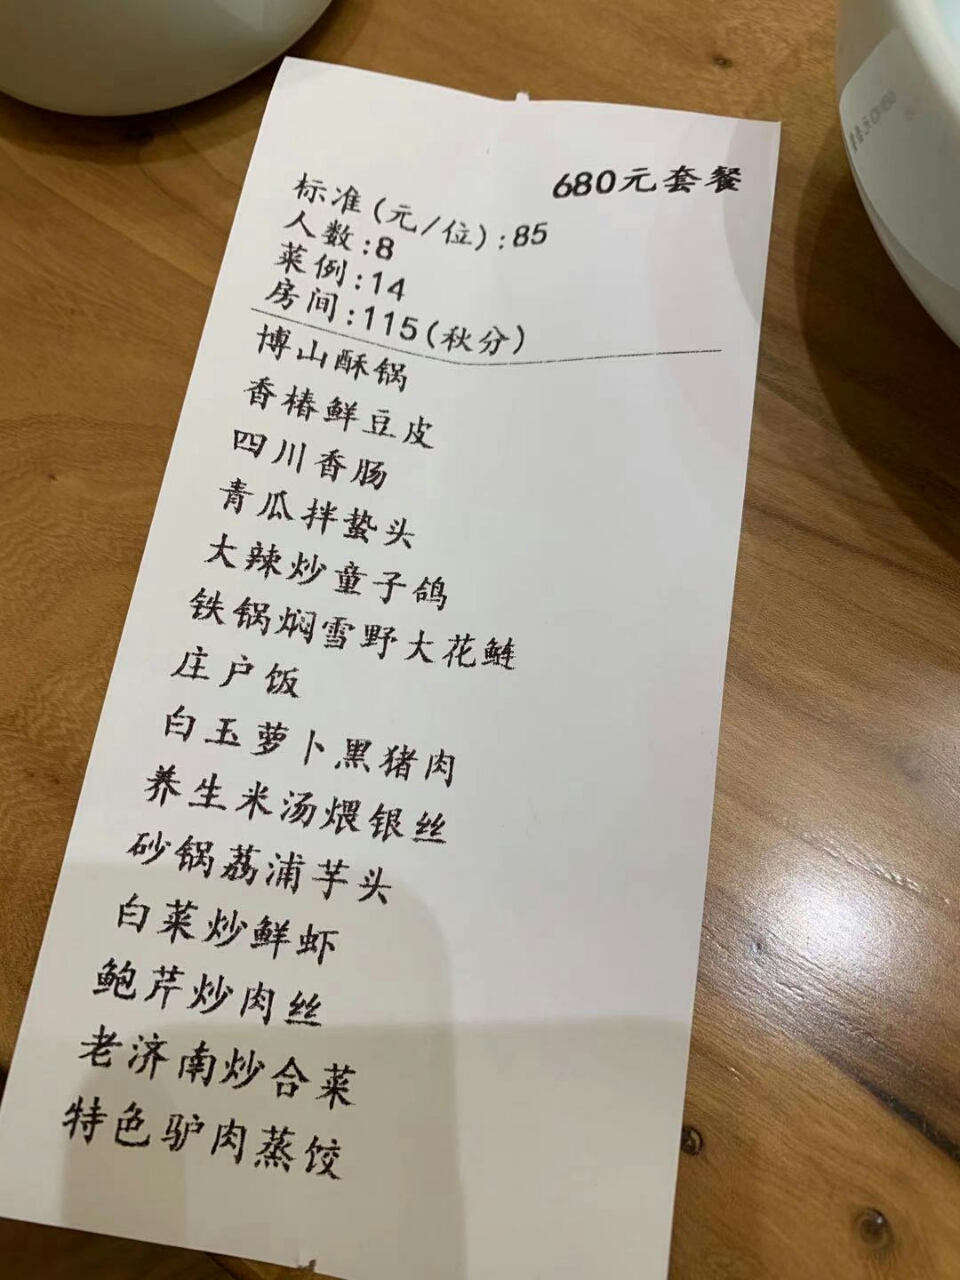 680元套餐
标准(元/位):85
人数:8
菜例:14
房间:115(秋分)
博山酥锅
香椿鲜豆皮
四川香肠
青瓜拌蛰头
大辣炒童子鸽
铁锅焖雪野大花鲢
庄户饭
白玉萝卜黑猪肉
养生米汤煨银丝
砂锅荔浦芋头
白菜炒鲜虾
鲍芹炒肉丝
老济南炒合菜
特色驴肉蒸饺